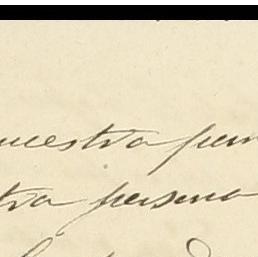 nuestra per
tra persona